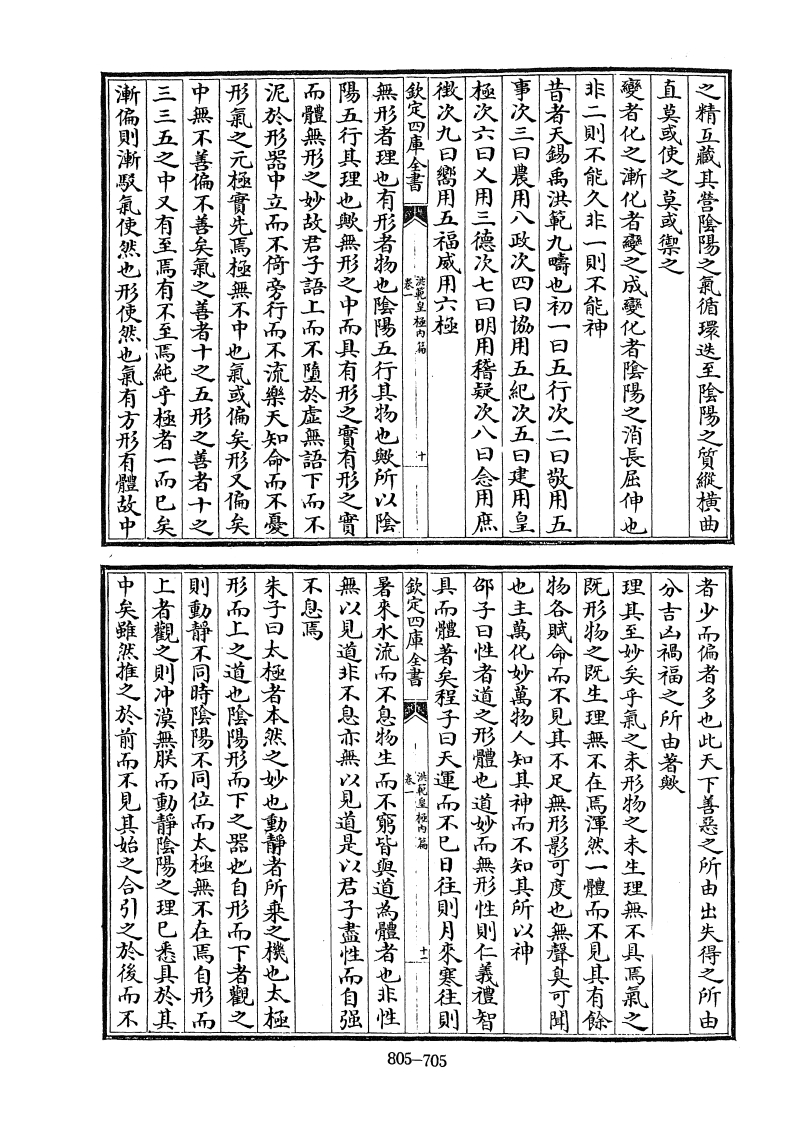 之精互藏其營陰陽之氣循環迭至陰陽之質縱横曲
直莫或使之莫或禦之
變者化之漸化者變之成變化者陰陽之消長屈伸也
非二則不能久非一則不能神
昔者天錫禹洪範九疇也初一曰五行次二曰敬用五
事次三曰農用八政次四曰協用五紀次五曰建用皇
極次六曰乂用三德次七曰明用稽疑次八曰念用庶
徵次九曰嚮用五福威用六極
欽定四庫全書
洪範皇極內篇
卷一
十
無形者理也有形者物也陰陽五行其物也歟所以陰
陽五行其理也歟無形之中而具有形之實有形之實
而體無形之妙故君子語上而不墮於虛無語下而不
泥於形器中立而不倚旁行而不流樂天知命而不憂
形氣之元極實先焉極無不中也氣或偏矣形又偏矣
中無不善偏不善矣氣之善者十之五形之善者十之
三三五之中又有至焉有不至焉純乎極者一而已矣
漸偏則漸駁氣使然也形使然也氣有方形有體故中
者少而偏者多也此天下善惡之所由出失得之所由
分吉凶禍福之所由著歟
理其至妙矣乎氣之未形物之未生理無不具焉氣之
既形物之既生理無不在焉渾然一體而不見其有餘
物各賦命而不見其不足無形影可度也無聲臭可聞
也主萬化妙萬物人知其神而不知其所以神
邵子曰性者道之形體也道妙而無形性則仁義禮智
具而體著矣程子曰天運而不已日往則月來寒往則
欽定四庫全書
洪範皇極內篇
卷一
十一
暑來水流而不息物生而不窮皆與道為體者也非性
無以見道非不息亦無以見道是以君子盡性而自强
不息焉
朱子曰太極者本然之妙也動靜者所乗之機也太極
形而上之道也陰陽形而下之器也自形而下者觀之
則動靜不同時陰陽不同位而太極無不在焉自形而
上者觀之則冲漠無朕而動靜陰陽之理已悉具於其
中矣雖然推之於前而不見其始之合引之於後而不
805—705